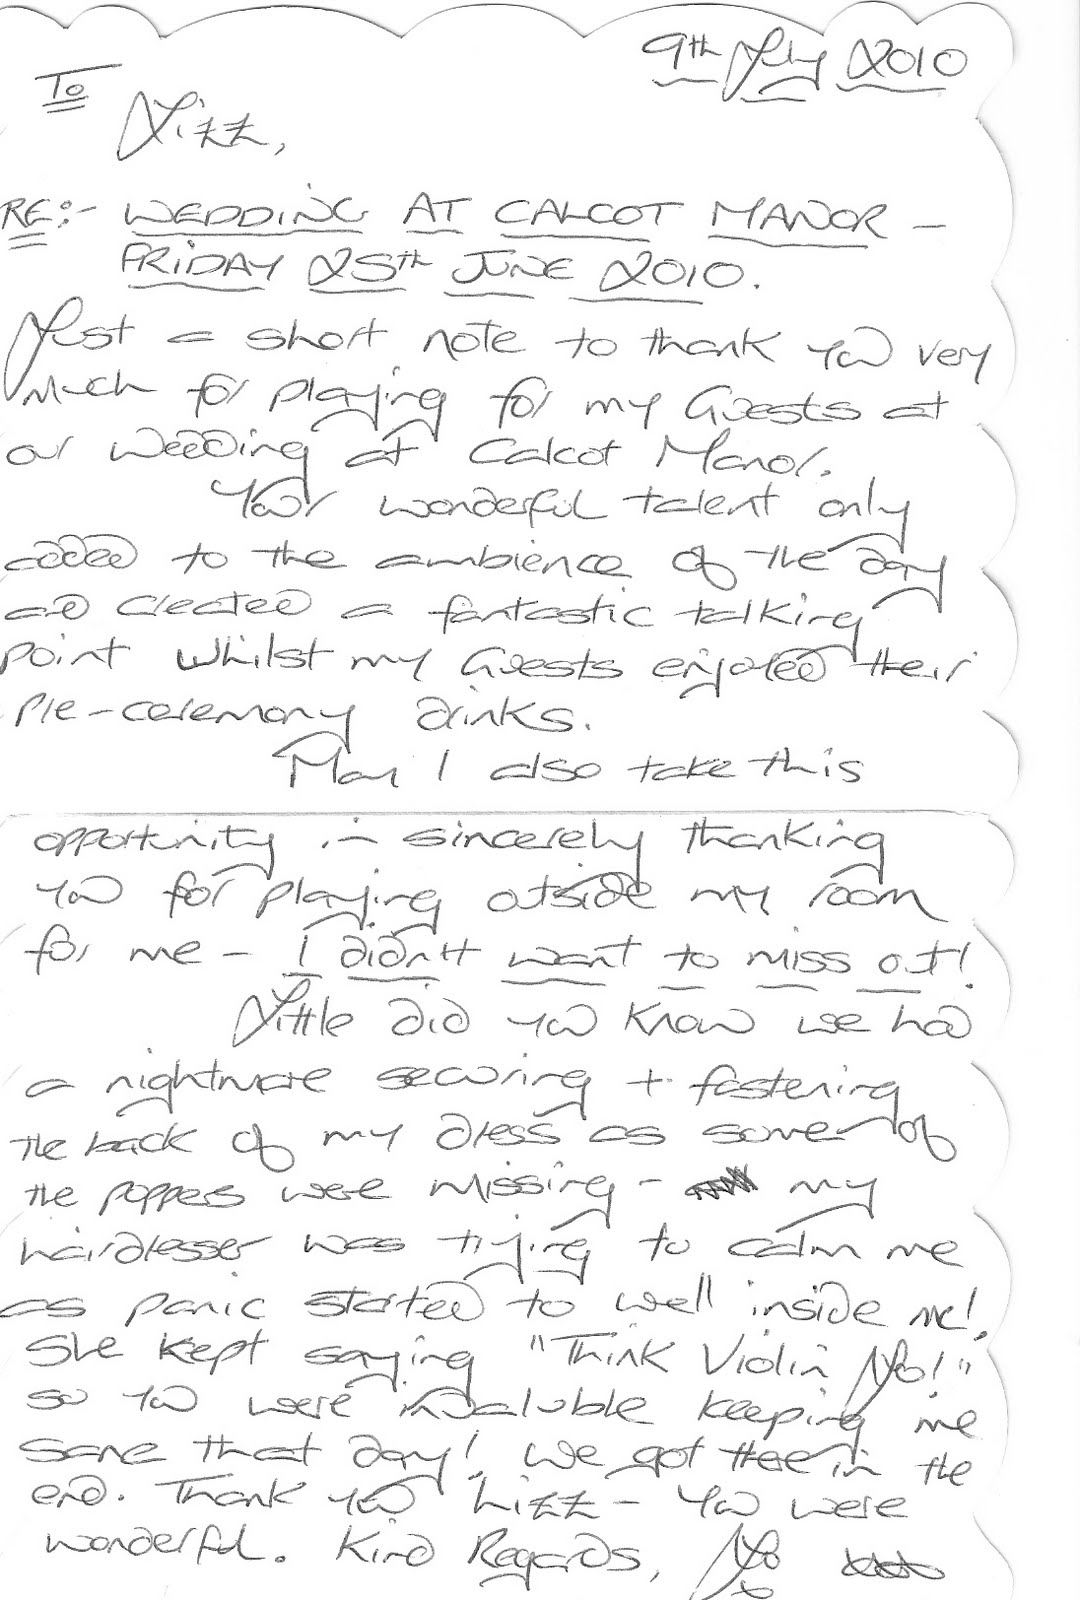 9th July 2010
To
Lizz,
RE:- WEDDING AT CALCOT MANOR -
FRIDAY 25th JUNE 2010.
Just a short note to thank you very
much for playing for my Guests at
our wedding at Calcot Manor.
Your wonderful talent only
added to the ambience of the day
and created a fantastic talking
point whilst my Guests enjoyed their
pre-ceremony drinks.
May I also take this
opportunity in sincerely thanking
you for playing outside my room
for me - I didn't want to miss out!
Little did you know we had
a nightmare securing + fastening
the back of my dress as some of
the poppers were missing - my
hairdresser was trying to calm me
as panic started to well inside me!
She kept saying "Think Violin Jo!"
so you were invaluble keeping me
sane that day! We got there in the
end. Thank you Lizz - you were
wonderful. Kind Regards, Jo